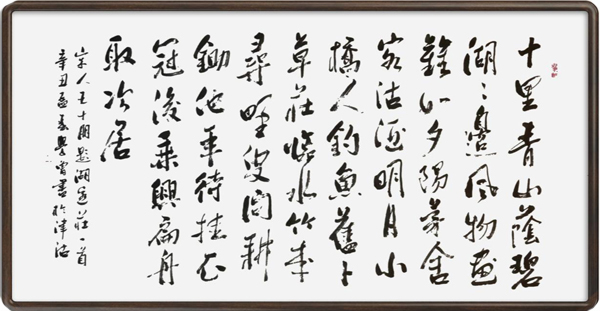 十里青山蔭碧
湖〻邊風物畫
難如夕陽茅舍
客沽酒明月小
橋人釣魚舊卜
草莊臨水竹來
尋野叟問耕
鋤他年待挂衣
冠後乘興扁舟
取次居
宋人王十朋題湖邊莊一首
辛丑孟夏學書於津沽